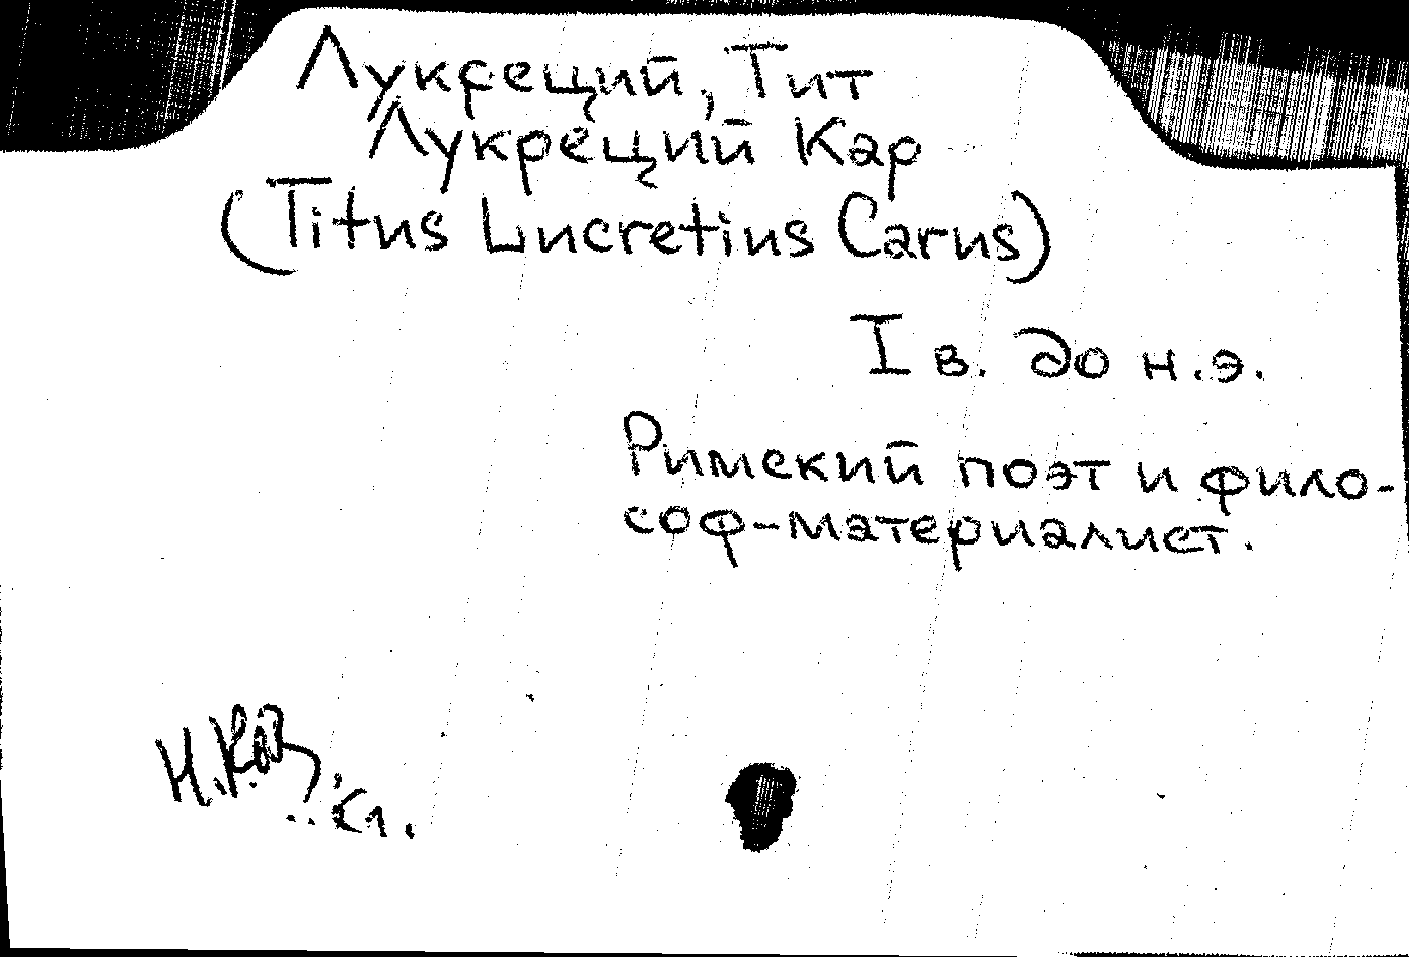 Лукреций, Тит
Лукреций Кар
(Titus Lucretius Carus)
I в. до н.э.
Римский поэт и фило-
соф-материалист.